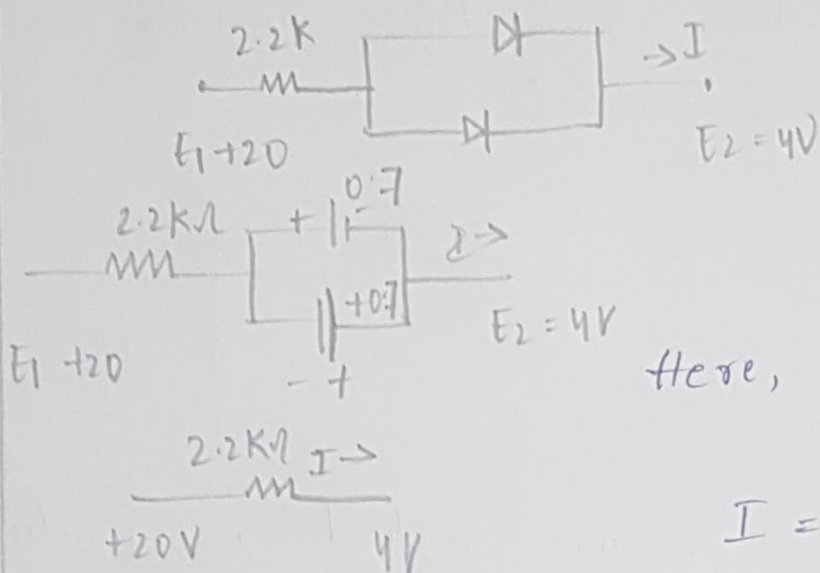 2.2K
→ I
E1 +20
E2 = 4V
0.7
2.2KΩ
+ -
I →
+0.7
E2 = 4V
E1 +20
- +
Here,
2.2KΩ I →
+20V 4V
I =